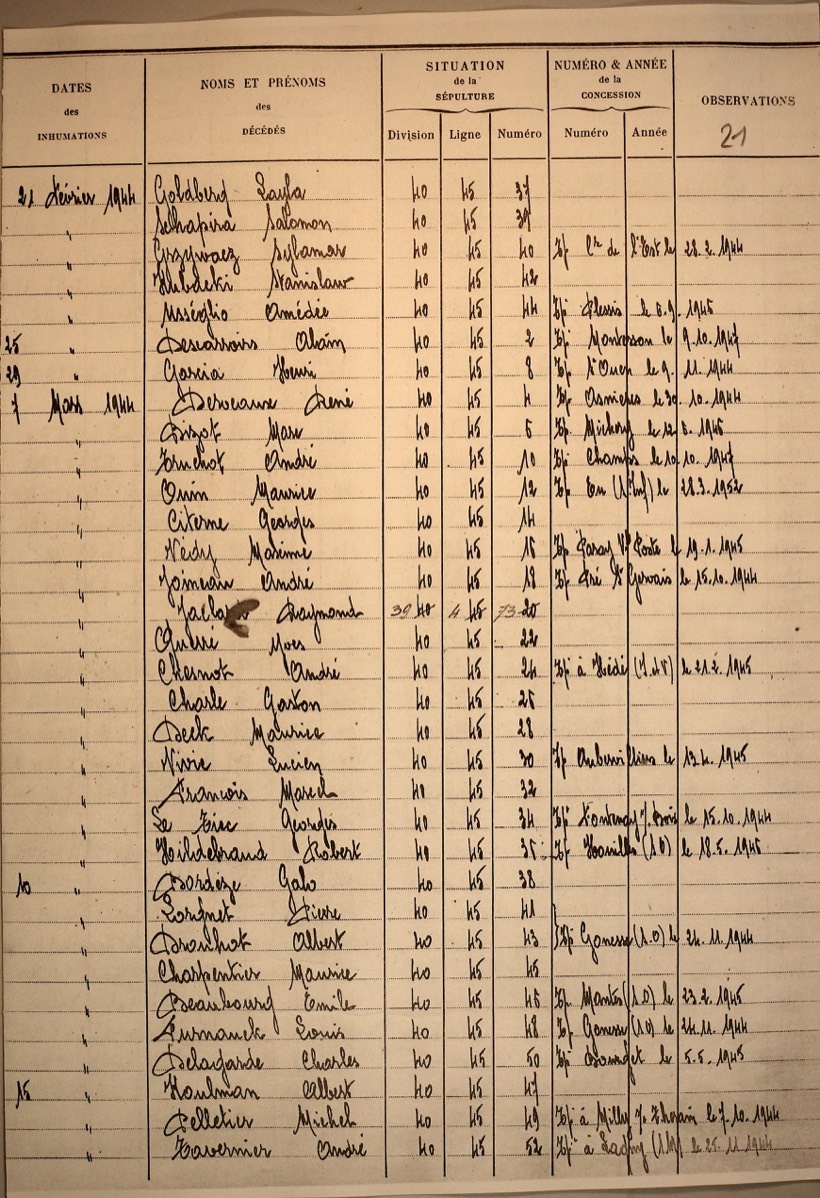 DATES des INHUMATIONS
NOMS ET PRÉNOMS des DÉCÉDÉS
SITUATION de la SÉPULTURE
NUMÉRO & ANNÉE de la CONCESSION
OBSERVATIONS
21
Division Ligne Numéro Numéro Année
21 Février 1944 Goldberg 40 45 37
" Schapira Salomon 40 45 39
" Grzywacz 40 45 40 l'Est le 28.2.1944
" Stanislaw 40 45 42
" Usséglio Amédée 40 45 44 Plessis le 1945
25 " 40 45 2 le 9.10.1947
29 " Garcia Henri 40 45 8 St Ouen le 9.11.1944
7 Mars 1944 René 40 45 4 Asnières le 30.10.1944
" Dizot Marc 40 45 6 le 12 1945
" Truchot André 40 45 10 Champs le 10.10.1947
" Ouin Maurice 40 45 12 Eu (S.Inf) le 28.3.1952
" Citerne Georges 40 45 14
" Nédy Maxime 40 45 16 Paray Vlle Poste le 19.1.1945
" André 40 45 18 Pré St Gervais le 15.10.1944
" Raymond 39 40 4 45 73 20
" Quéré Yves 40 45 22
" Chesnot André 40 45 24 à Hédé (I.et V) le 21.2.1945
" Charle Gaston 40 45 26
" Deck Maurice 40 45 28
" Lucien 40 45 30 Aubervilliers le 1945
" François Marcel 40 45 32
" Le Georges 40 45 34 Fontenay s/ Bois le 15.10.1944
" Hildebrand Robert 40 45 36 Houilles (S.O) le 18.5.1945
10 " 40 45 38
" Pierre 40 45 41
" Drouhot Albert 40 45 43 Gonesse (S.O) le 24.11.1944
" Charpentier Maurice 40 45 45
" Beaubourg Emile 40 45 46 Mantes (S.O) le 23.2.1945
" Louis 40 45 48 Gonesse (S.O) le 24.11.1944
" Delagarde Charles 40 45 50 Bourget le 5.5.1945
15 " Houlman Albert 40 45 47
" Pelletier Michel 40 45 49 à Milly s/ Thérain le 7.10.1944
" Tavernier André 40 45 52 à Lagny (S.M) le 25.11.1944